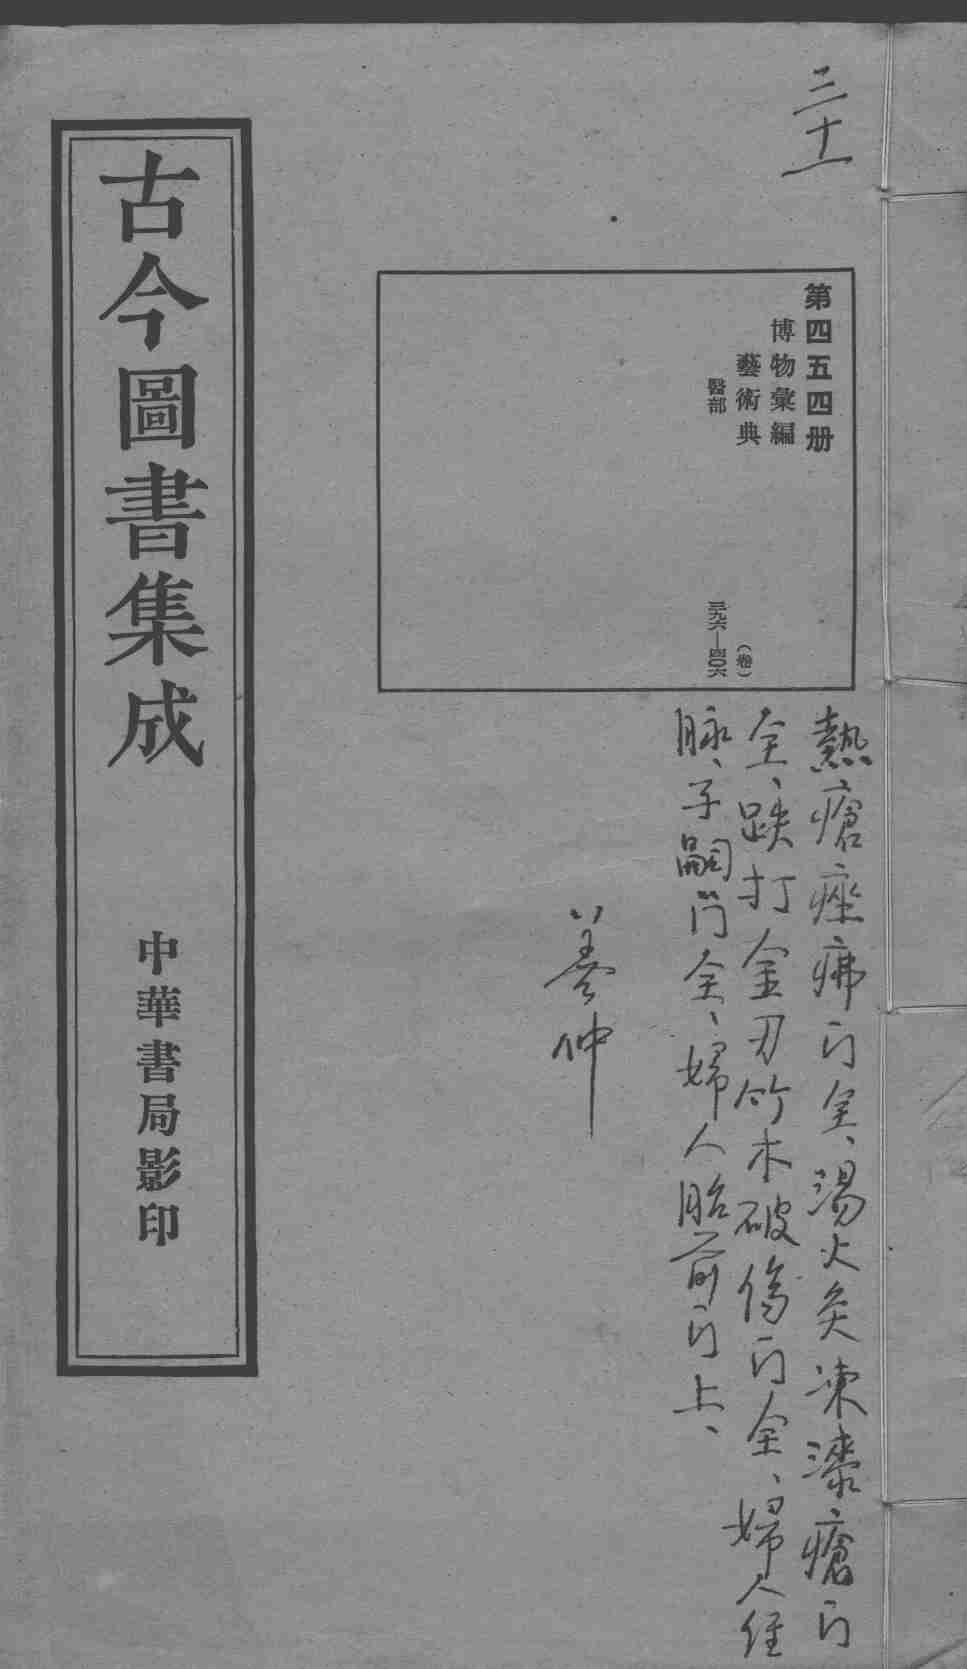 三十一
第四五四册
博物彙編
藝術典
(卷)
醫部
三九六—四〇六
熱瘡痤疿门全、湯火灸凍漆瘡门
全、跌打金刃竹木破傷门全、婦人經
脉、子嗣门全、婦人胎前门上、
养仲
古今圖書集成
中華書局影印